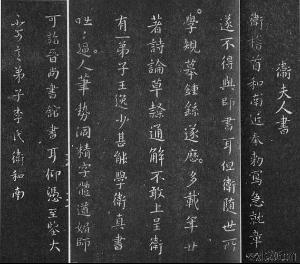 衛夫人書
衛稽首和南近奉勅寫急就章
遂不得與師書耳但衛隨世所
學規摹鍾繇遂歷多載年廿
著詩論草隸通解不敢上呈衛
有一弟子王逸少甚能學衛真書
咄咄逼人筆勢洞精字體遒媚師
可詣晉尚書舘書耳仰憑至鑒大
不可言弟子李氏衛和南